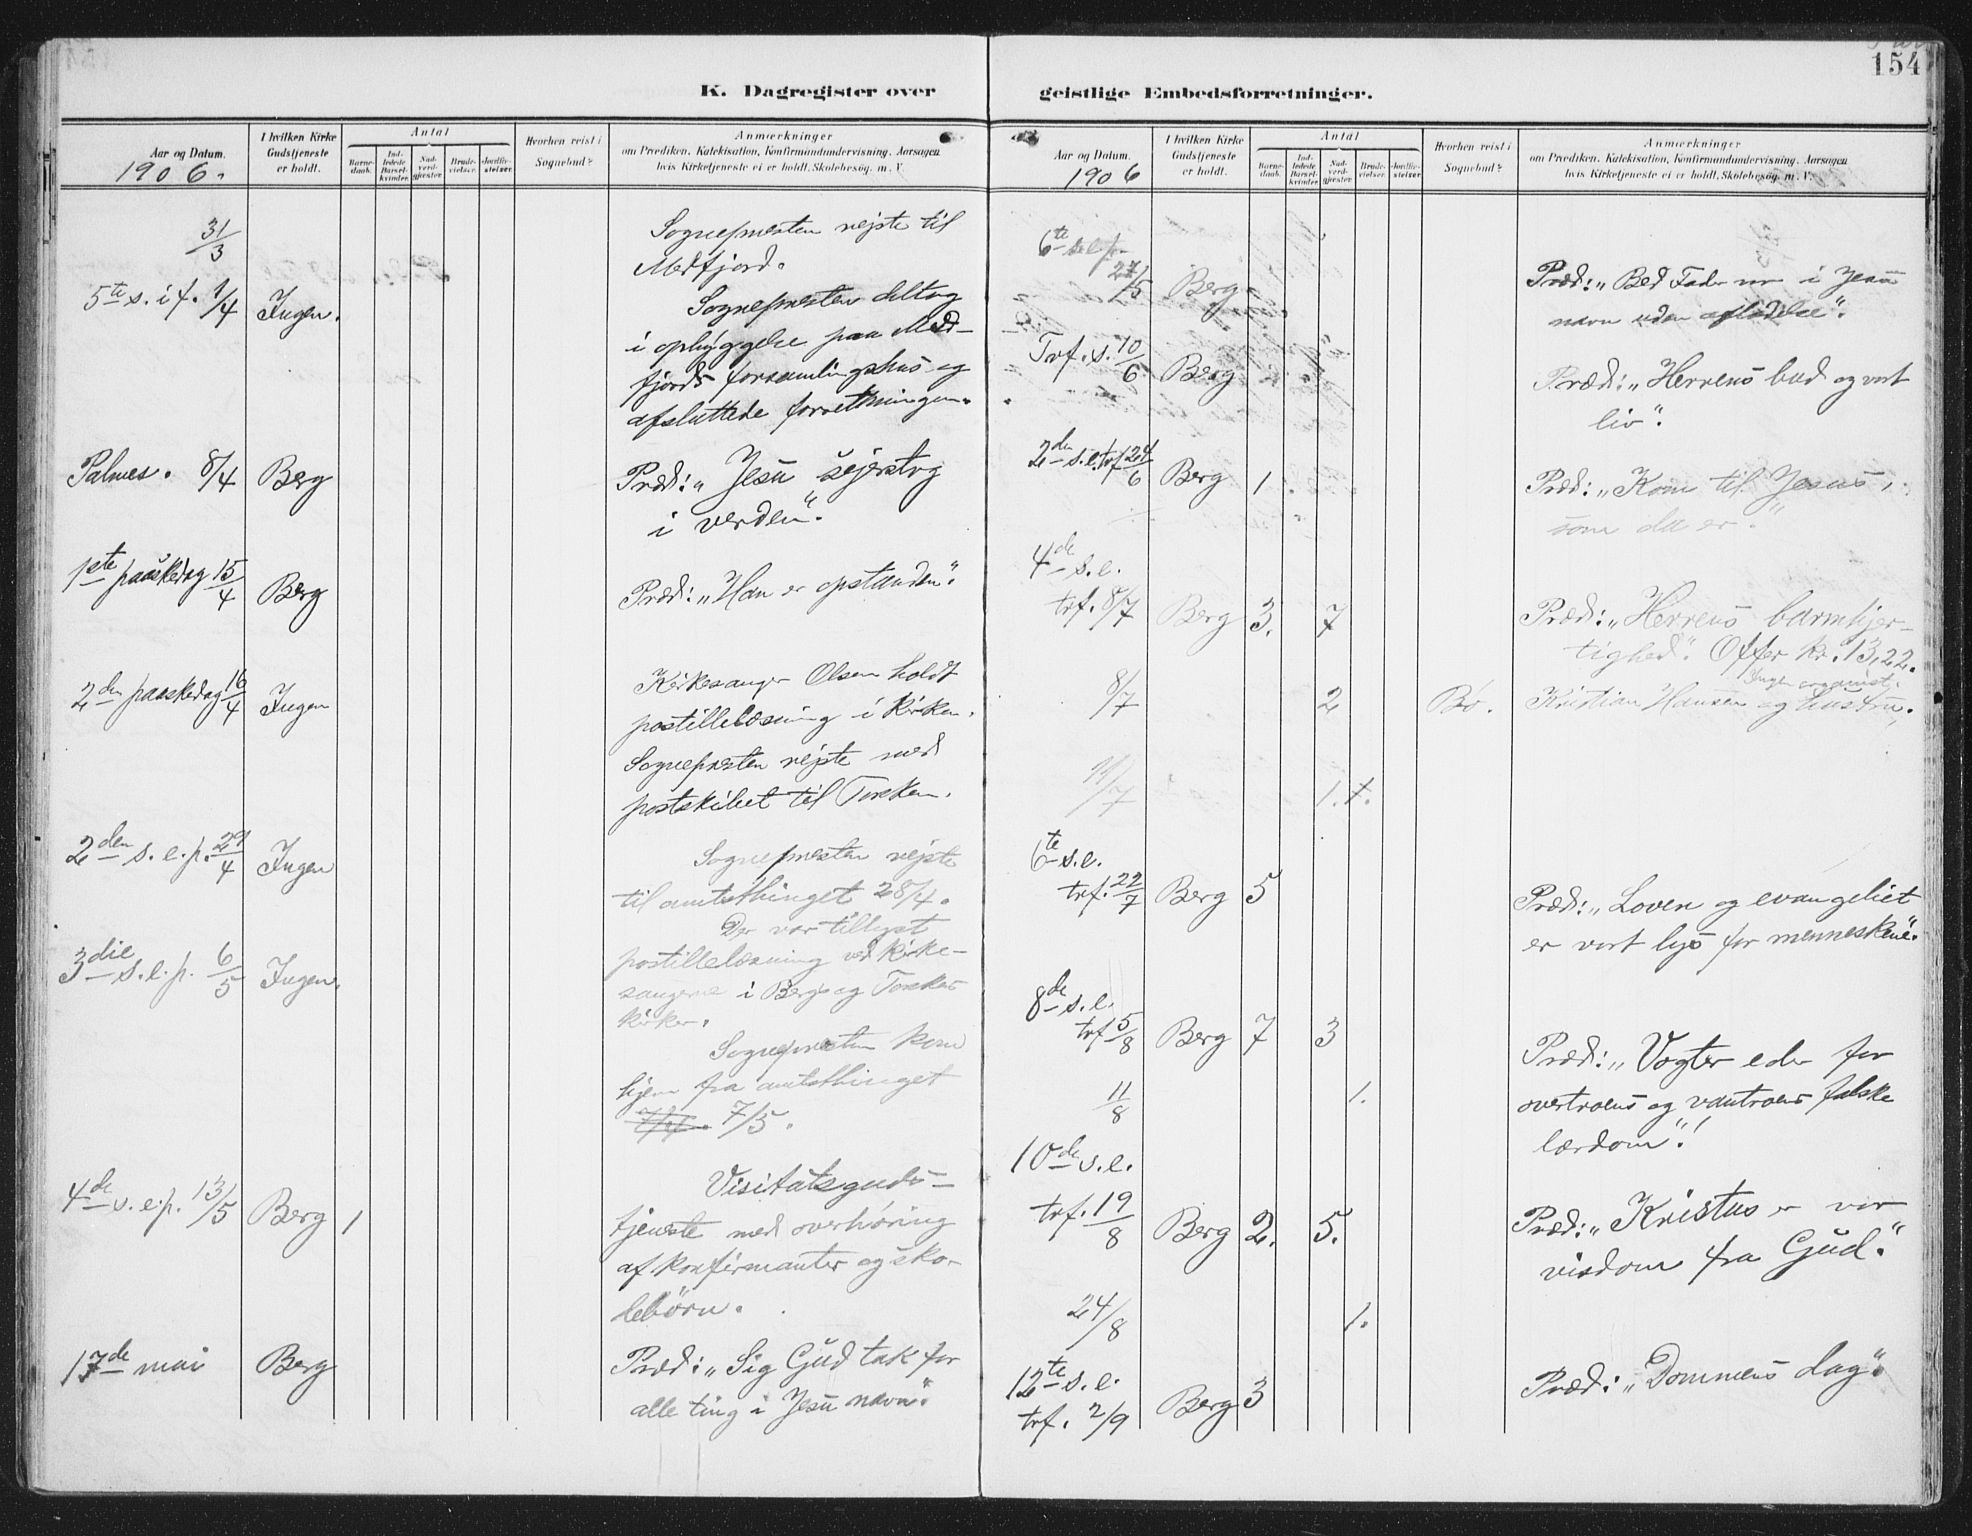 K. Dagregister over
Aar og Datum.
1906.
I hvilken Kirke
Gudstjeneste
er holdt.
Antal
Barne-
daab.
Ind-
ledede
Barsel-
kvinder.
Nad-
verd-
gjester.
Brude-
vielser.
Jordfæ-
stelser.
Hvorhen reist i
Sognebud?
Anmærkninger
om Prædiken. Katekisation, Konfirmandundervisning. Aarsagen
hvis Kirketjeneste ei er holdt. Skolebesög. m. V.
31/3
Sognepresten rejste til
Medfjord.
5te s. i f. 1/4 Ingen.
Sognepresten deltog
i opbyggelse paa Med-
fjords forsamlingshus og
afsluttede forretningen.
Palmes. 8/4 Berg
Præd: „Jesu sejerstog
i verden“.
1ste paaskedag 15/4 Berg
Præd: „Han er opstanden“.
2den paaskedag 16/4 Ingen
Kirkesanger Olsen holdt
postillelæsning i kirken.
Sognepresten rejste med
postskibet til Torsken.
2den s. e. p. 29/4 Ingen
Sognepresten rejste
til amtsthinget 28/4.
Der var tillyst
3die s. e. p. 6/5 Ingen.
postillelæsning ved kirke-
sangerne i Bergs og Torskens
kirker.
Sognepresten kom
hjem fra amtsthinget
7/5.
4de s. e. p. 13/5 Berg 1
Visitatsguds-
tjeneste med overhøring
af konfirmanter og sko-
lebörn.
17de mai Berg
Præd: „Sig Gud tak for
alle ting i Jesu navn“.
154
geistlige Embedsforretninger.
Aar og Datum.
1906
I hvilken Kirke
Gudstjeneste
er holdt.
Antal
Barne-
daab.
Ind-
ledede
Barsel-
kvinder.
Nad-
verd-
gjester.
Brude-
vielser.
Jordfæ-
stelser.
Hvorhen reist i
Sognebud?
Anmærkninger
om Prædiken. Katekisation, Konfirmandundervisning. Aarsagen
hvis Kirketjeneste ei er holdt. Skolebesög. m. V.
6te s. e. p.
27/5 Berg
Præd: „Bed Faderen i Jesu
navn uden afladelse“.
Trf. s. 10/6 Berg
Præd: „Herrens bud og vort
liv“.
2den s. e. trf 24/6 Berg 1
Præd: „Kom til Jesus,
som du er“.
4de s. e.
trf. 8/7 Berg 3. 7
Præd: „Herrens barmhjer-
tighed“. Offer kr. 13,22.
Ingen organist.
8/7 2 Bø. Kristian Hansen og hustru.
11/7 1. 1.
6te s. e.
trf. 22/7 Berg 5
Præd: „Loven og evangeliet
er vort lys for menneskene“.
8de s. e.
trf 5/8 Berg 7 3
Præd: „Vogter eder for
11/8 1.
overtroens og vantroens falske
lærdom“!
10de s. e.
trf. 19/8 Berg 2. 5.
Præd: „Kristus er vor
visdom fra Gud.“
24/8 1.
12te s. e.
trf. 2/9 Berg 3
Præd: „Dommens dag“.